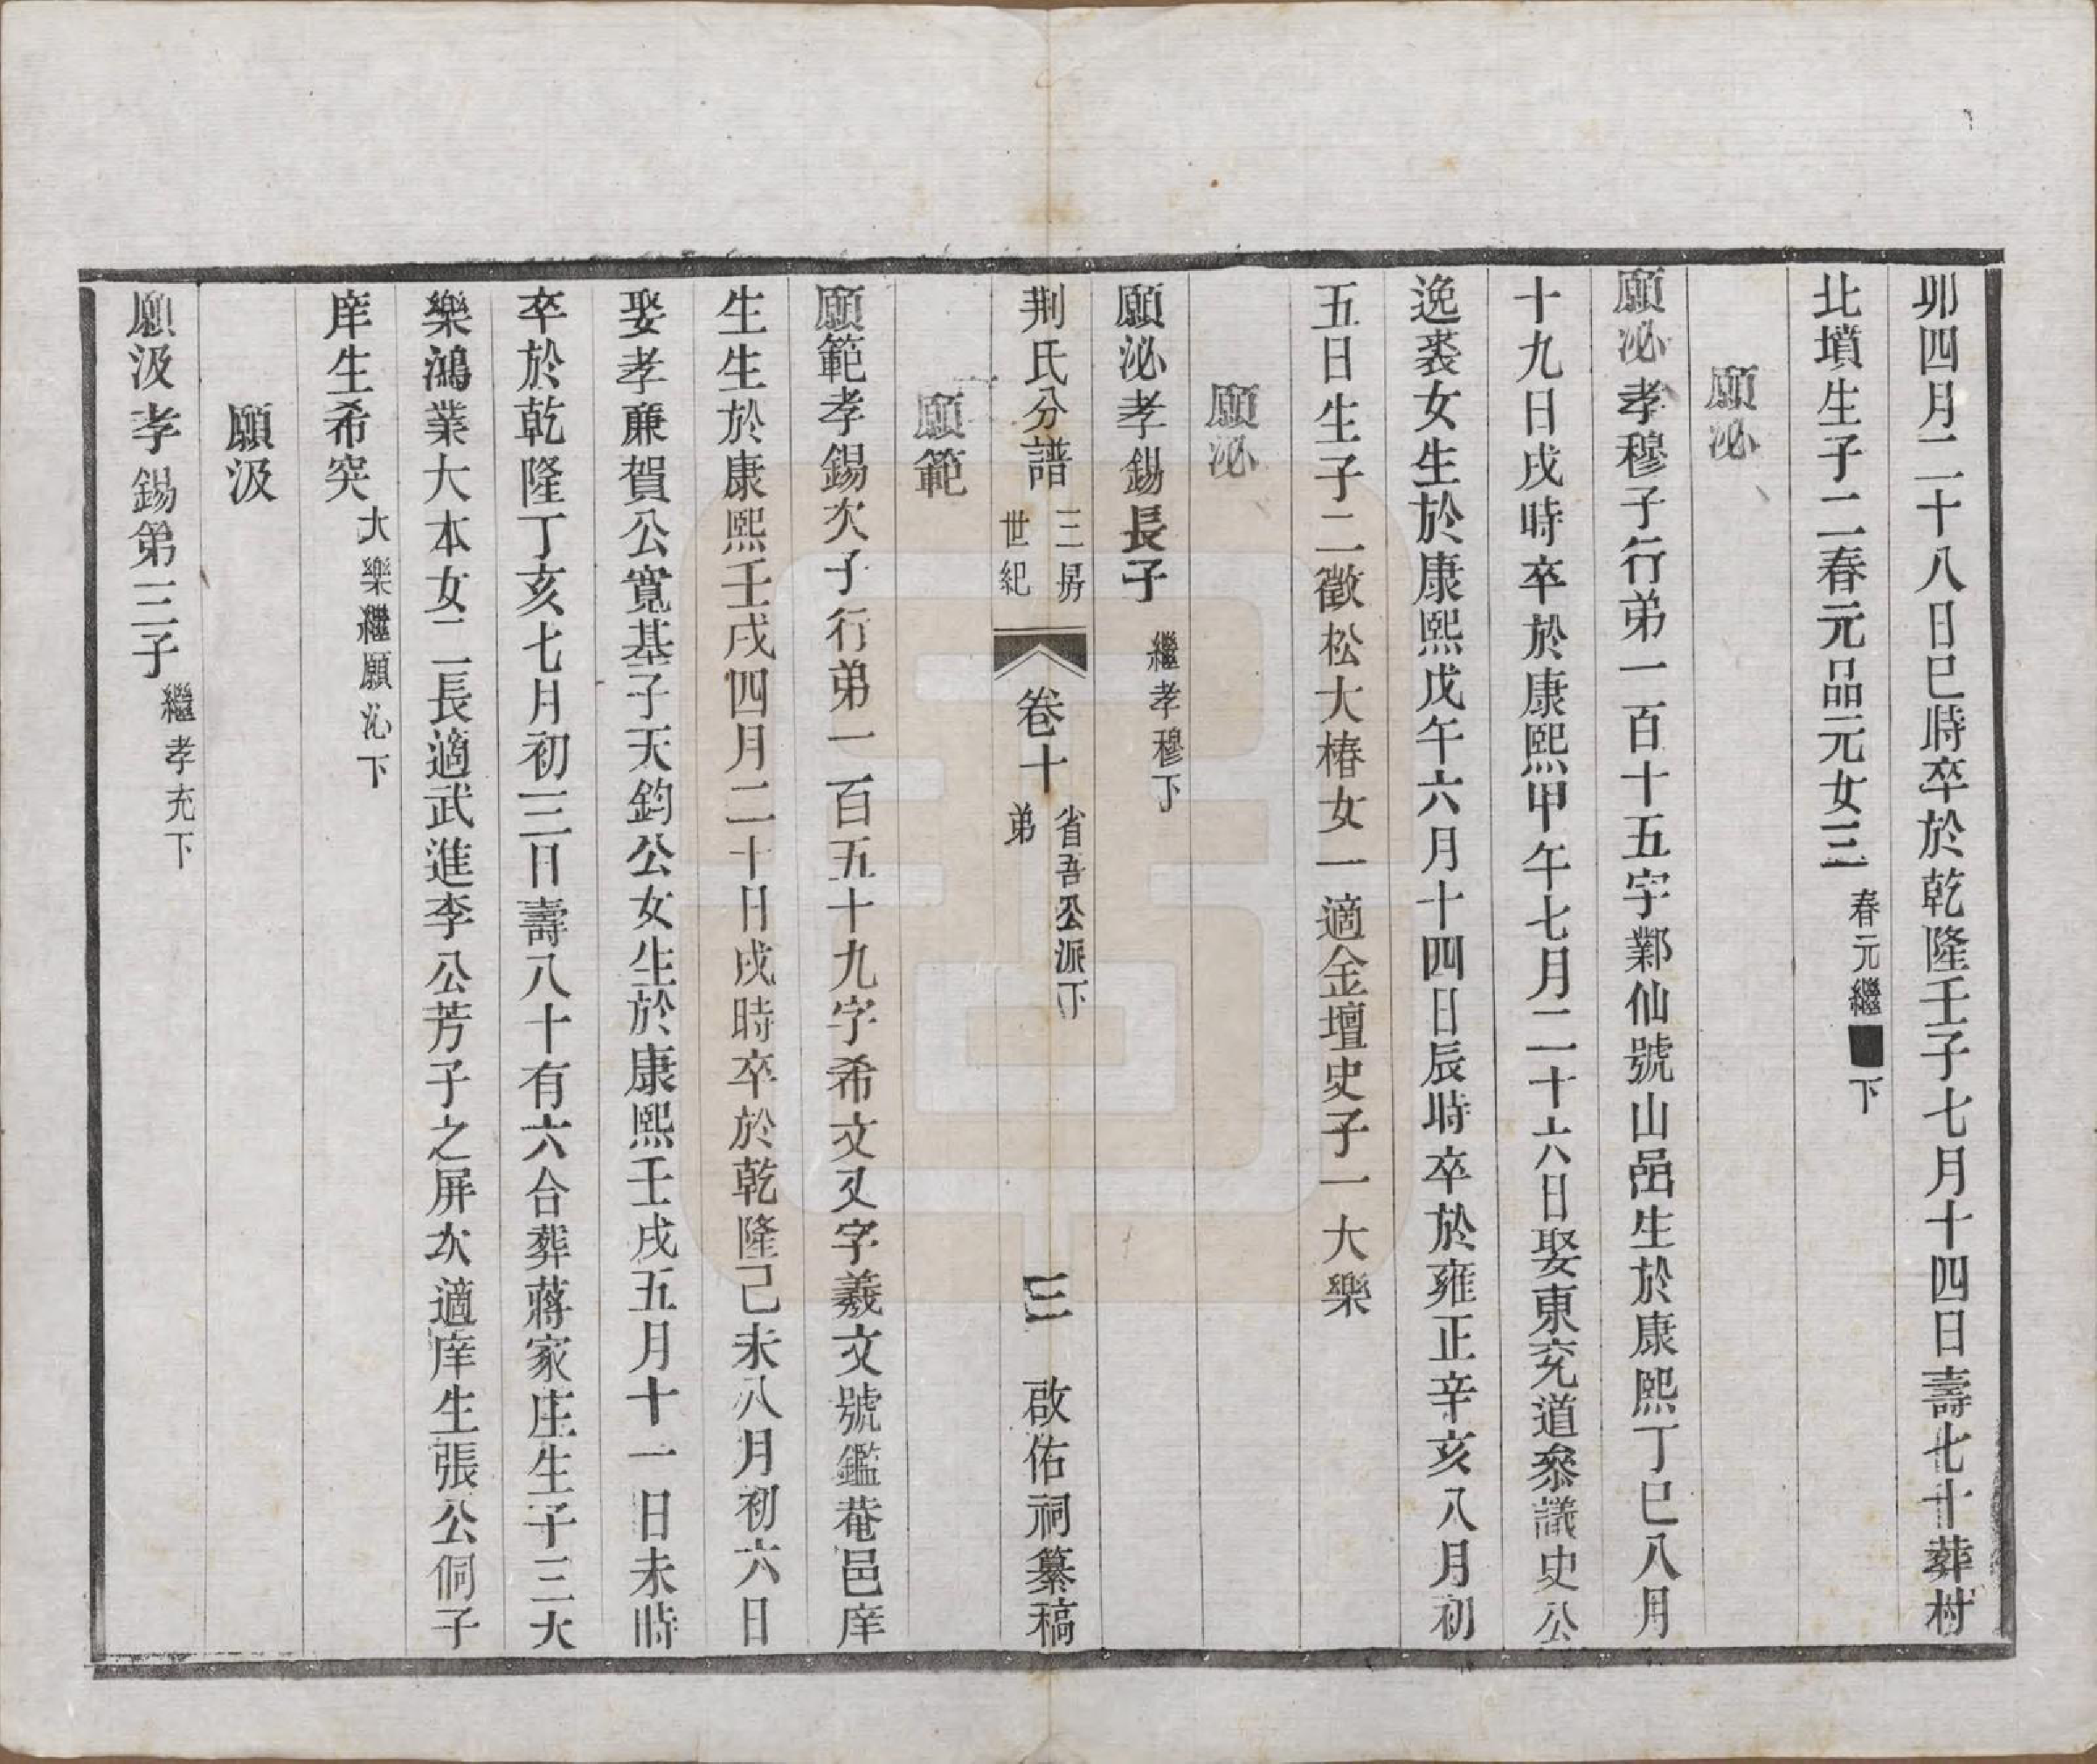 卯四月二十八日巳時卒於乾隆壬子七月十四日壽七十葬村
北墳生子二春元品元女三春元繼■下
願泌
願泌孝穆子行弟一百十五字鄴仙號山嵒生於康熙丁巳八月
十九日戌時卒於康熙甲午七月二十六日娶東兖道叅議史公
逸裘女生於康熙戊午六月十四日辰時卒於雍正辛亥八月初
五日生子二徵松大椿女一適金壇史子一大樂
願泌
願泌孝錫長子繼孝穆下
荆氏分譜 三房世紀 卷十 省吾公派下弟 三 啟佑祠纂稿
願範
願範孝錫次子行弟一百五十九字希文又字羲文號鑑菴邑庠
生生於康熙壬戌四月二十日戌時卒於乾隆己未八月初六日
娶孝亷賀公寬基子天鈞公女生於康熙壬戌五月十一日未時
卒於乾隆丁亥七月初三日壽八十有六合葬蔣家庄生子三大
樂鴻業大本女二長適武進李公芳子之屏次適庠生張公侗子
庠生希突大樂繼願沁下
願汲
願汲孝錫第三子繼孝充下